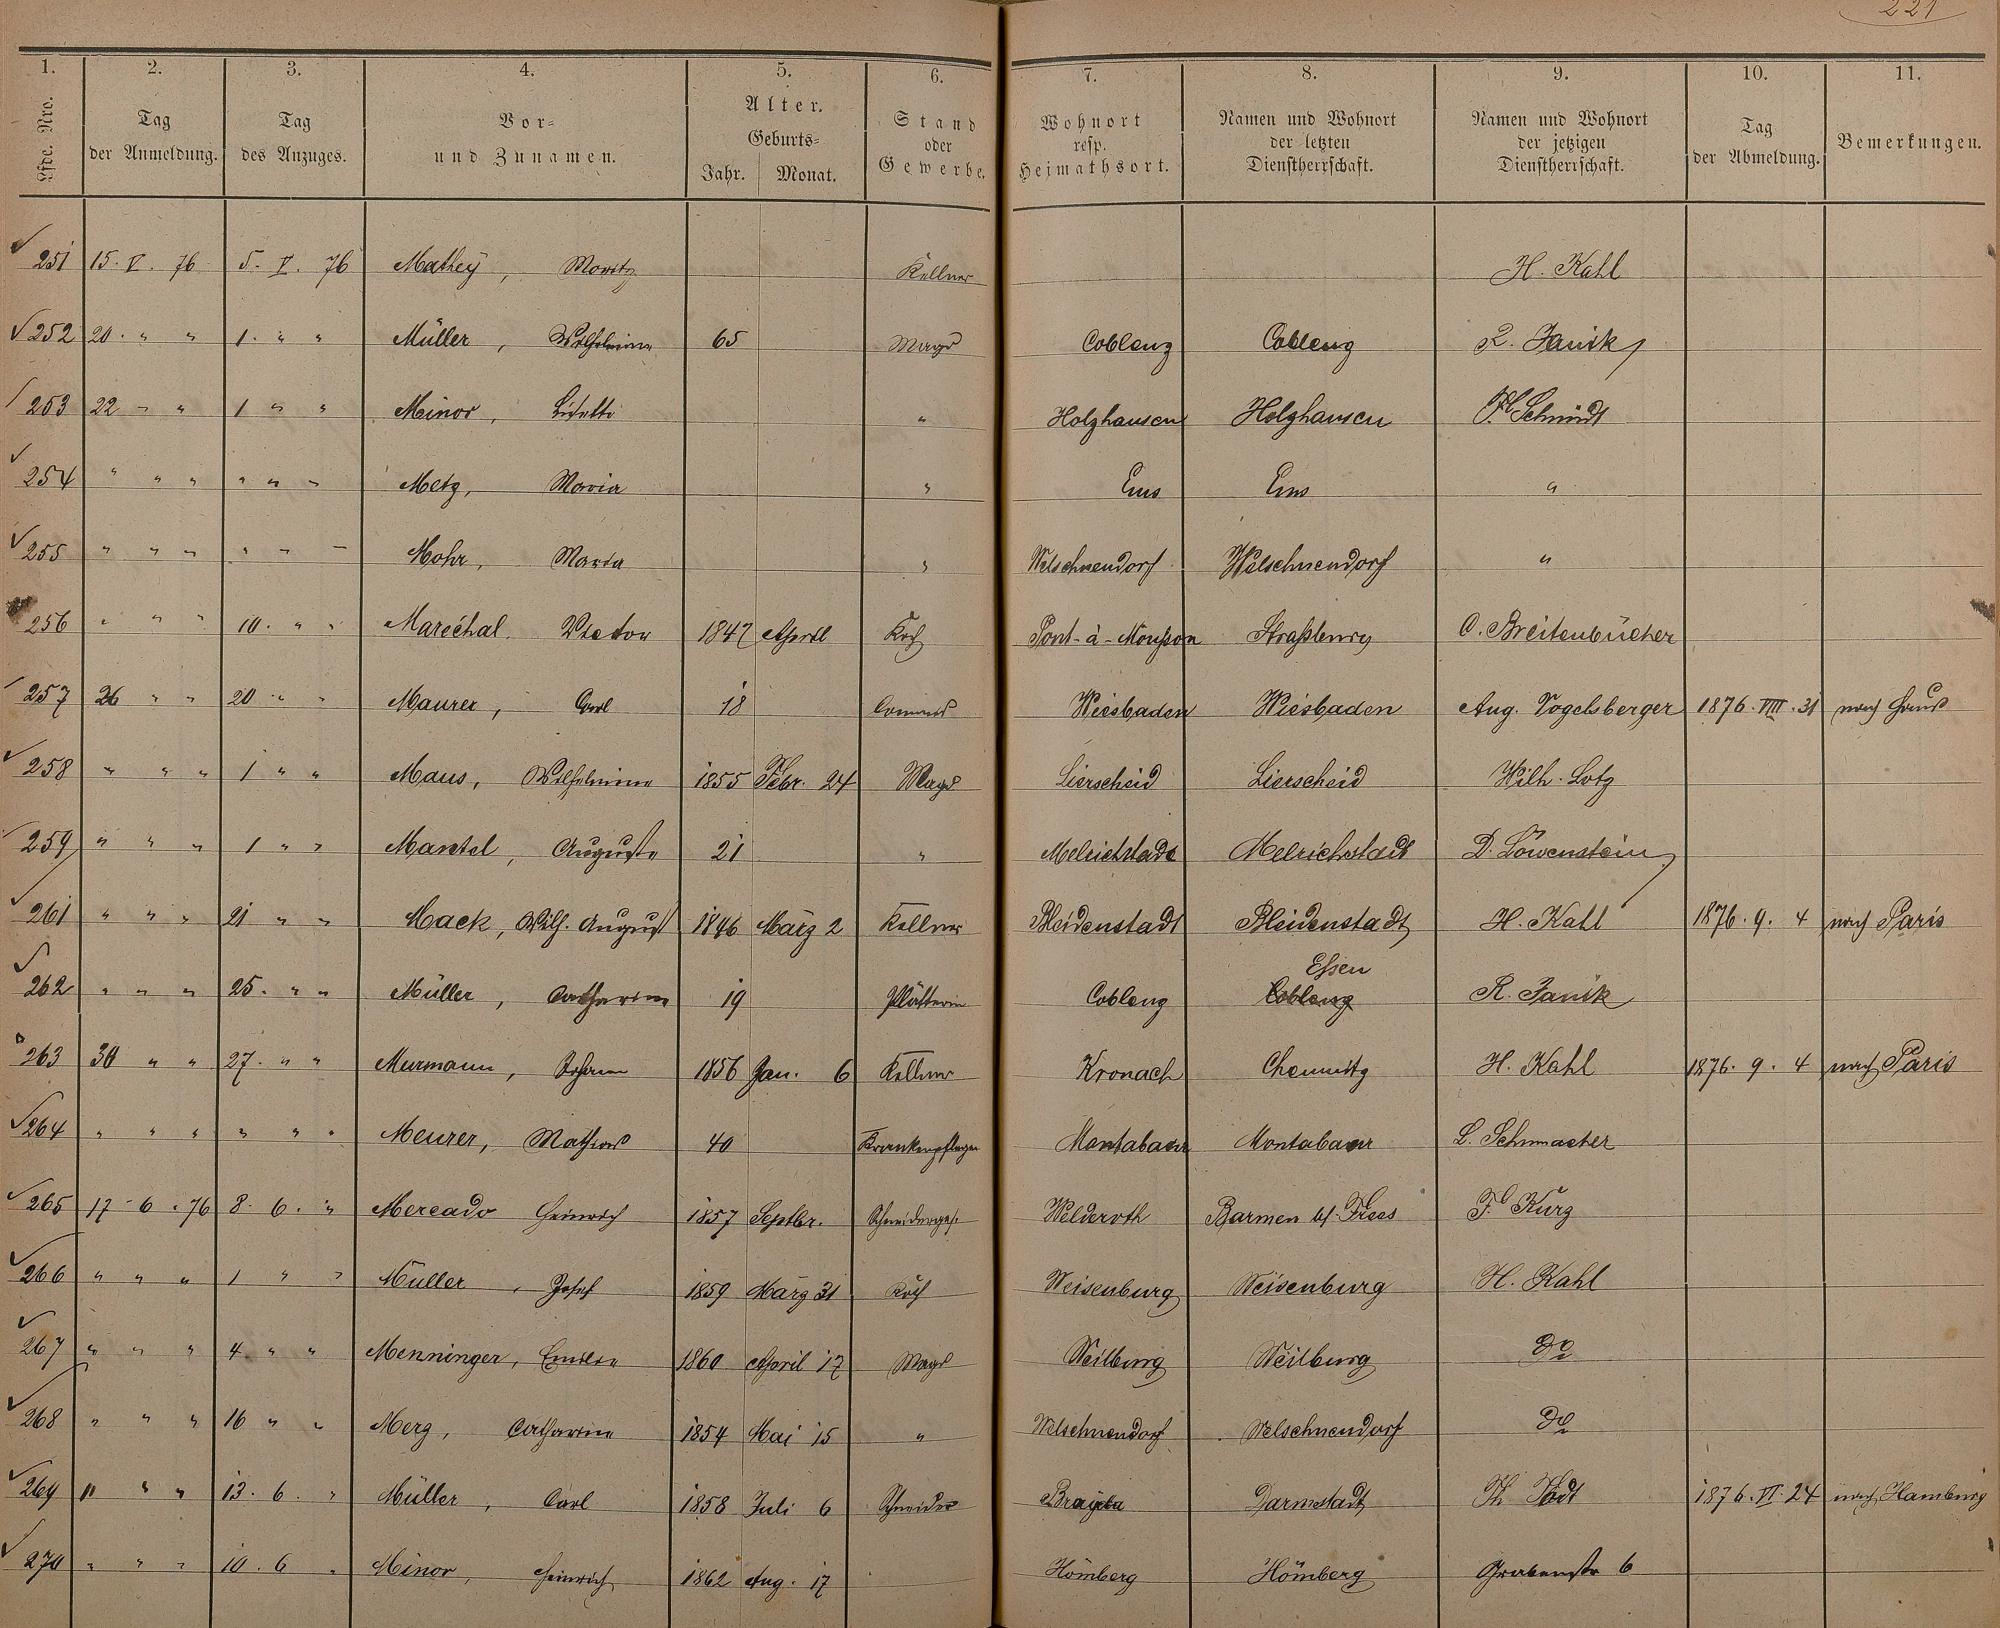 221
1. 2. 3. 4. 5. 6. 7. 8. 9. 10. 11.
Lfde. Nro. Tag der Anmeldung. Tag des Anzuges. Vor- und Zunamen. Alter. Geburts- Jahr. Monat. Stand oder Gewerbe. Wohnort resp. Heimathsort. Namen und Wohnort der letzten Dienstherrschaft. Namen und Wohnort der jetzigen Dienstherrschaft. Tag der Abmeldung. Bemerkungen.
251 15. V. 76 5. V. 76 Mathey, Moritz Kellner H. Kahl
252 20. " " 1. " " Müller, Wilhelmine 65 Magd Coblenz Coblenz R. Janik
253 22 " " 1 " " Minor, Lisette " Holzhausen Holzhausen Ph. Schmidt
254 " " " " " " Metz, Maria " Ems Ems "
255 " " " " " " Mohr, Maria " Welschnendorf Welschnendorf "
256 " " " 10. " " Maréchal. Victor 1847 April Koch Pont-à-Moußon Straßburg C. Breitenbücher
257 26 " " 20 " " Maurer, Carl 18 Commis Wiesbaden Wiesbaden Aug. Vogelsberger 1876. VIII. 31 nach Haus
258 " " " 1 " " Maus, Wilhelmine 1855 Febr. 24 Magd Lierscheid Lierscheid Wilh. Lotz
259 " " " 1 " " Mantel, Auguste 21 " Melrichstadt Melrichstadt D. Löwenstein
261 " " " 21 " " Mack, Wilh. August 1846 März 2 Kellner Bleidenstadt Bleidenstadt H. Kahl 1876. 9. 4 nach Paris
262 " " " 25. " " Müller, Catharine 19 Plätterin Coblenz Coblenz Essen R. Janik
263 30 " " 27. " " Murmann, Johann 1856 Jan. 6 Kellner Kronach Chemnitz H. Kahl 1876. 9. 4 nach Paris
264 " " " " " " Meurer, Mathias 40 Krankenpfleger Montabaur Montabaur L. Schumacher
265 17. 6. 76 8. 6. " Mercado Heinrich 1857 Septbr. Schneiderges. Welderoth Barmen b/. Frees F. Kurz
266 " " " 1 " " Müller, Josef 1859 März 31 Koch Weisenburg Weisenburg H. Kahl
267 " " " 4. " " Menninger, Emilie 1860 April 17 Magd Weilburg Weilburg do
268 " " " 16 " " Merz, Catharine 1854 Mai 15 " Welschnendorf Welschnendorf do
269 " " " 13. 6. " Müller, Carl 1858 Juli 6 Schneider Darmstadt Th. Todt 1876. VI. 24 nach Hamburg
270 " " " 10. 6 " Minor, Heinrich 1862 Aug. 17 Hömberg Hömberg Grabenstr 6